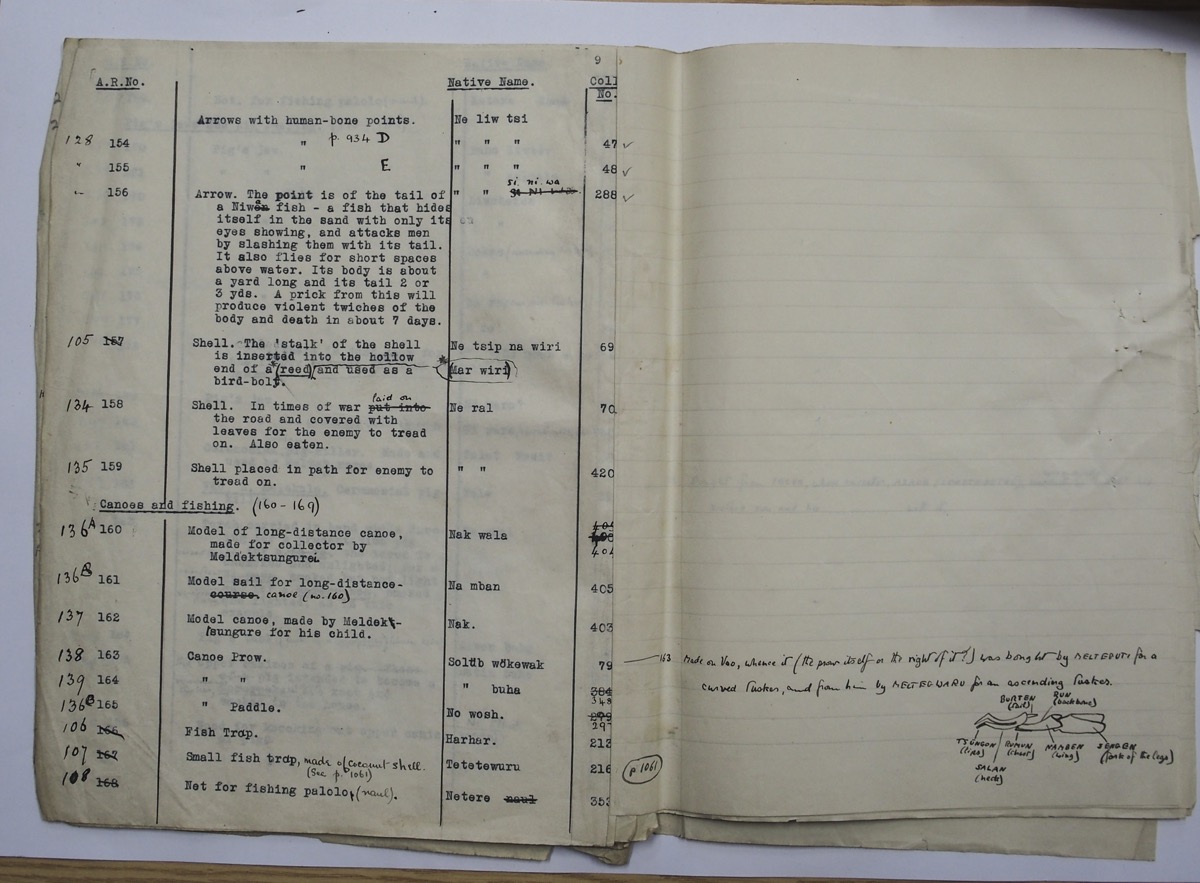 9
A.R.No. Native Name. Coll
No.
Arrows with human-bone points. Ne liw tsi
128 154 " p. 934 D " " " 47 ✓
" 155 " E " " " 48 ✓
si ni wa
" 156 Arrow. The point is of the tail of " " 288 ✓
a Niwên fish - a fish that hides
itself in the sand with only its
eyes showing, and attacks men
by slashing them with its tail.
It also flies for short spaces
above water. Its body is about
a yard long and its tail 2 or
3 yds. A prick from this will
produce violent twiches of the
body and death in about 7 days.
105 157 Shell. The 'stalk' of the shell Ne tsip na wiri 69
is inserted into the hollow
end of a (reed) and used as a * (Mar wiri)
bird-bolt.
laid on
134 158 Shell. In times of war put into Ne ral 70
the road and covered with
leaves for the enemy to tread
on. Also eaten.
135 159 Shell placed in path for enemy to " " 420
tread on.
Canoes and fishing. (160-169)
136A 160 Model of long-distance canoe, Nak wala
made for collector by 404
Meldektsungurei
136B 161 Model sail for long-distance- Na mban 405
course. canoe (no. 160)
137 162 Model canoe, made by Meldek- Nak. 403
tsungure for his child.
138 163 Canoe Prow. Solüb wökewak 79
139 164 " " " buha 384
348
136C 165 " Paddle. No wosh. 299
297
106 166 Fish Trap. Harhar. 212
107 167 Small fish trap, made of cocoanut shell. Tetetewuru 216
(See p. 1061)
108 168 Net for fishing palolo, (naul). Netere naul 353
163 Made on Vao, whence it (the prow itself or the right of it?) was bought by MELTEPUTI for a
curved Tusker, and from him by MELTEGWARU for an ascending Tusker.
BURTEN (tail) RUN (backbone)
TSUNGON (lips) RUMUN (chest) NAMBEN (wing) SERGEN (fork of the legs)
SALAN (neck)
p 1061